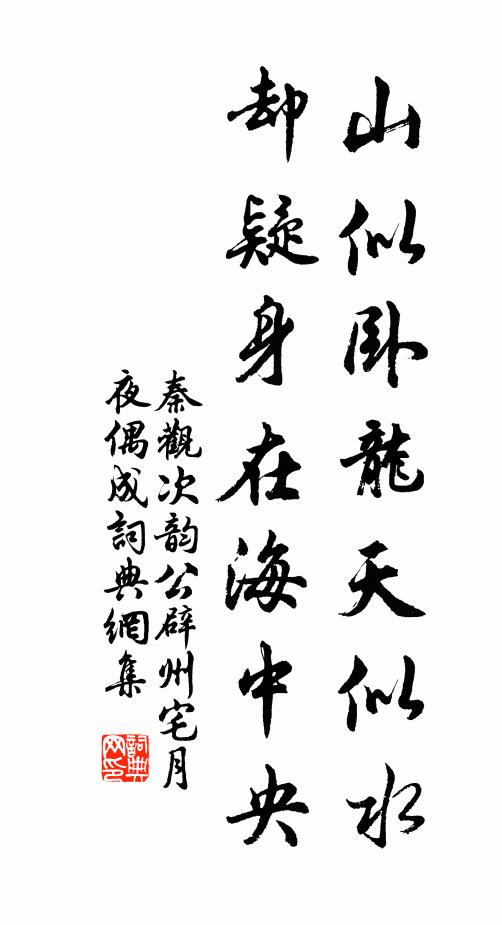 山似卧龍天似水
却疑身在海中央
秦觀次韵公辟州宅月
夜偶成詞典網集
詞典
网印